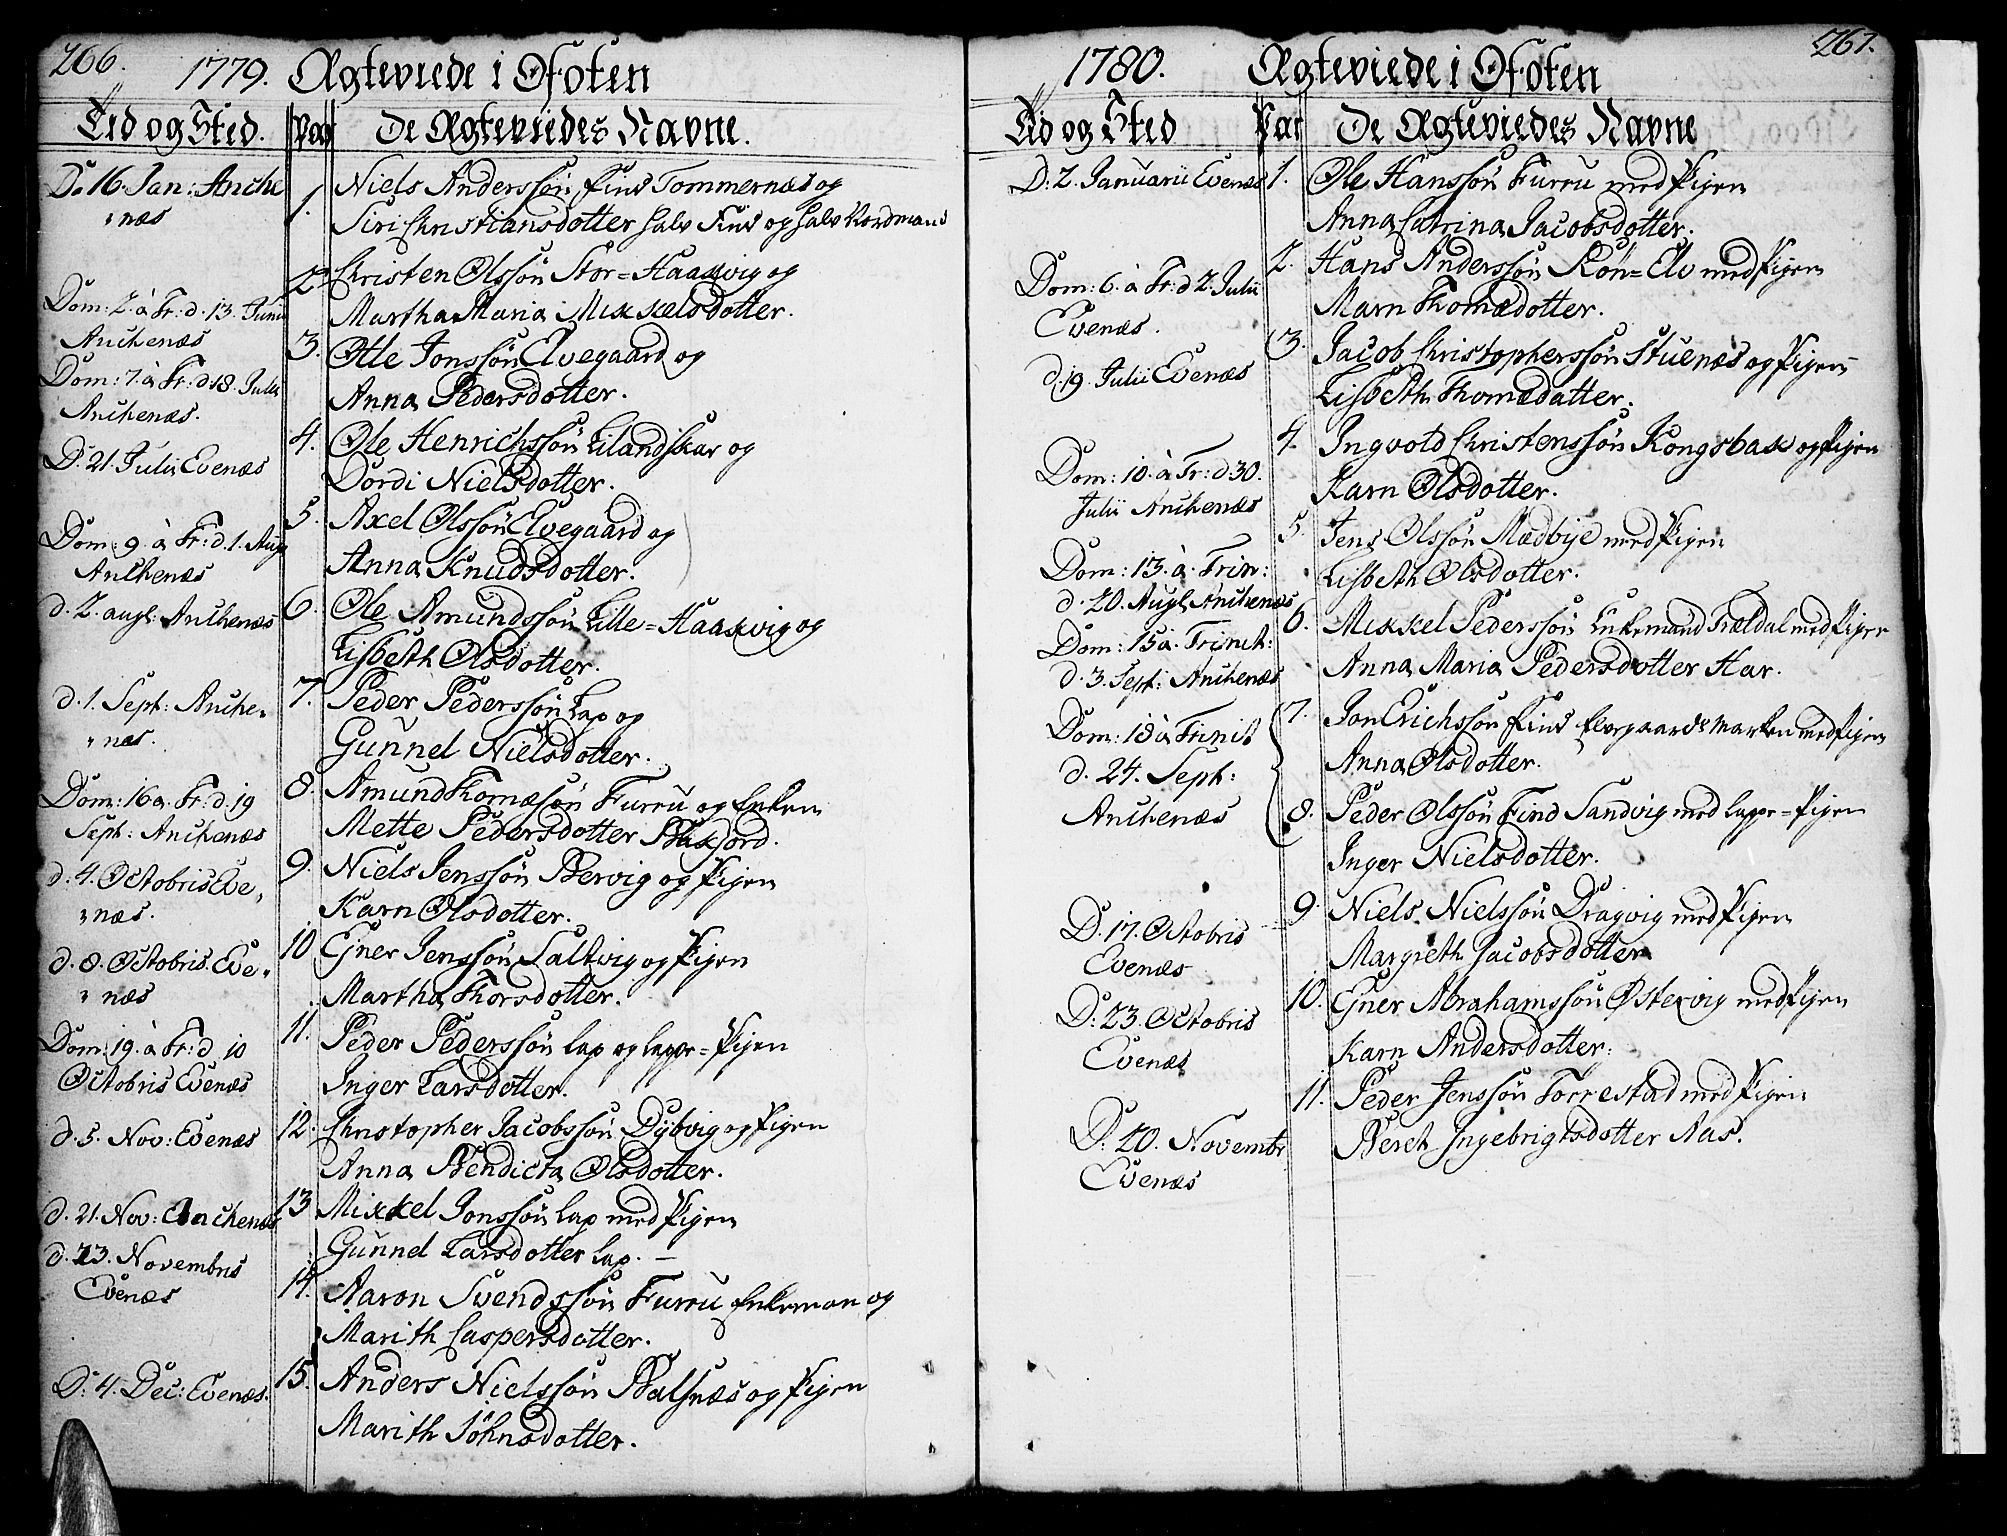 266.
1779. Ægteviede i Ofoten
Tid og Sted. Par De Ægteviedes Navne.
D. 16. Jan: Anche
næs
1. Niels Anderssøn Find Tommernæs og
Siri Christiansdotter halv Find og halv Nordmand
Dom: 2. à Tr: d. 13. Junii
Anchenæs
2. Christen Olssøn Stor=Haakvig og
Martha Maria Mikkelsdotter.
Dom: 7. à Tr: d. 18. Julii
Anchenæs.
3. Olle Jonssøn Elvegaard og
Anna Pedersdotter.
D. 21. Julii Evenæs
4. Ole Henrichssøn Lilandskar og
Dordi Nielsdotter.
Dom: 9. à Tr: d. 1. Aug
Anchenæs
5. Axel Olssøn Elvegaard og
Anna Knudsdotter.
d. 2. augl: Anchenæs
6. Ole Amundssøn Lille=Haakvig og
Lisbeth Olsdotter.
d. 1. Sept: Anche
næs.
7. Peder Pederssøn Lap og
Gunnel Nielsdotter.
Dom: 16 a. Tr: d. 19
Sept: Anchenæs
8. Amund Thomæsøn Furru og Enken
Mette Pedersdotter Bukfiord.
d. 4. Octobris Eve
næs.
9. Niels Jenssøn Bervig og Pigen
Karn Olsdotter.
d. 8. Octobris Eve
næs
10. Ejner Jenssøn Saltvig og Pigen
Martha Thorsdotter.
Dom: 19. à Tr: d. 10
Octobris Evenæs
11. Peder Pederssøn Lap og Lappe=Pigen
Inger Larsdotter.
d. 5. Nov: Evenæs
12. Christopher Jacobssøn Dybvig og Pigen
Anna Bendicta Olsdotter.
d. 21. Nov: Anchenæs
13. Mikkel Jonssøn Lap med Pigen
Gunnel Larsdotter Lap.
d. 23. Novembris
Evenæs
14. Aaron Svendssøn Furru Enkeman og
Marith Caspersdotter.
D. 4. Dec: Evenæs.
15. Anders Nielssøn Balsnæs og Pigen
Marith Johnsdotter.
267.
1780. Ægteviede i Ofoten
Tid og Sted Par De Ægteviedes Navne
D: 2. Januarii Evenæs
1. Ole Hanssøn Furru med Pigen
Anna Catrina Jacobsdotter.
Dom: 6. à Tr: d 2. Julii
Evenæs.
2. Hans Anderssøn Røn=Elv med Pigen
Marn Thomædotter.
d. 19. Julii Evenæs
3. Jacob Christopherssøn Stuenæs og Pigen
Lisbeth Thomædatter.
Dom: 10. à Tr: d: 30.
Julii Anchenæs
4. Ingvold Christenssøn Kongsbak og Pigen
Karn Olsdotter.
Dom: 13. à. Trin:
d. 20. Augl Anchenæs
5. Jens Olssøn Mædbye med Pigen
Lisbeth Olsdotter.
Dom: 15 a. Trinit:
d. 3. Sept: Anchenæs
6. Mikkel Pederssøn Enkemand Trældal med Pigen
Anna Maria Pedersdotter Har.
Dom: 18 à Trinit
d. 24. Sept:
Anchenæs
7. Jon Erichssøn Find Elvegaards marken med Pigen
Anna Olsdotter.
8. Peder Olssøn Find Sandvig med Lappe=Pigen
Inger Nielsdotter.
D. 17. Octobris
Evenæs
9. Niels Nielssøn Dragvig med Pigen
Margreth Jacobsdotter
D: 23. Octobris
Evenæs
10. Ejner Abrahamssøn Østervig med Pigen
Karn Andersdotter.
D: 20. Novembr
Evenæs
11. Peder Jenssøn Forrestad med Pigen
Bereth Ingebrigtsdotter Aas.